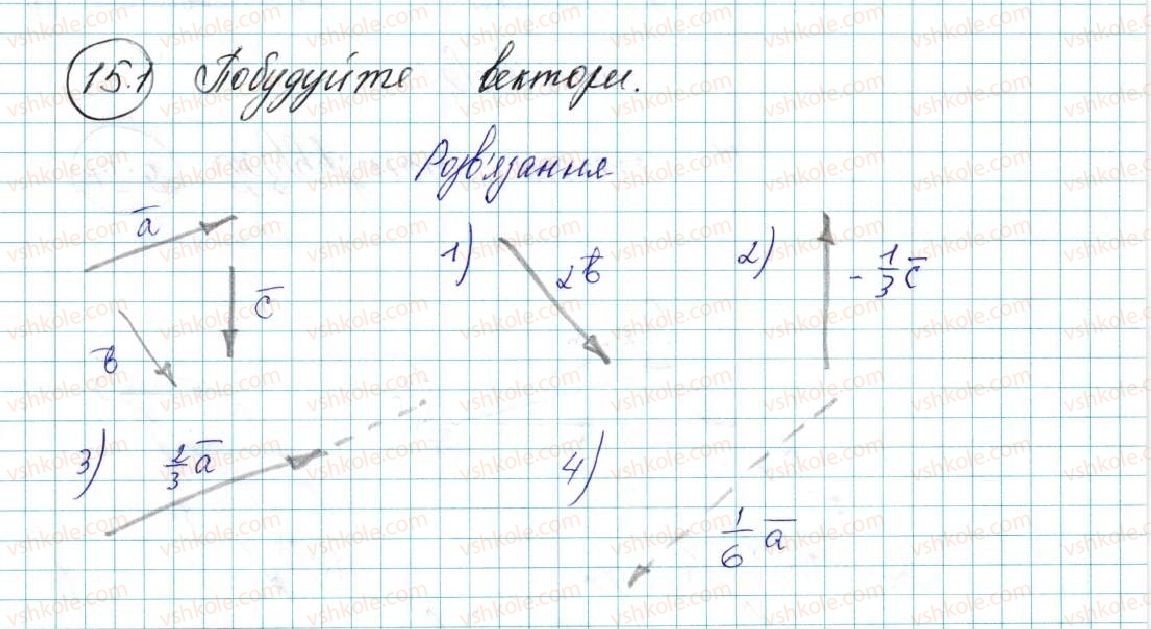 15.1 Побудуйте вектори.
Розв'язання
a̅
b̅
c̅
1) 2b̅
2) -1/3 c̅
3) 2/3 a̅
4) 1/6 a̅
vshkole.com